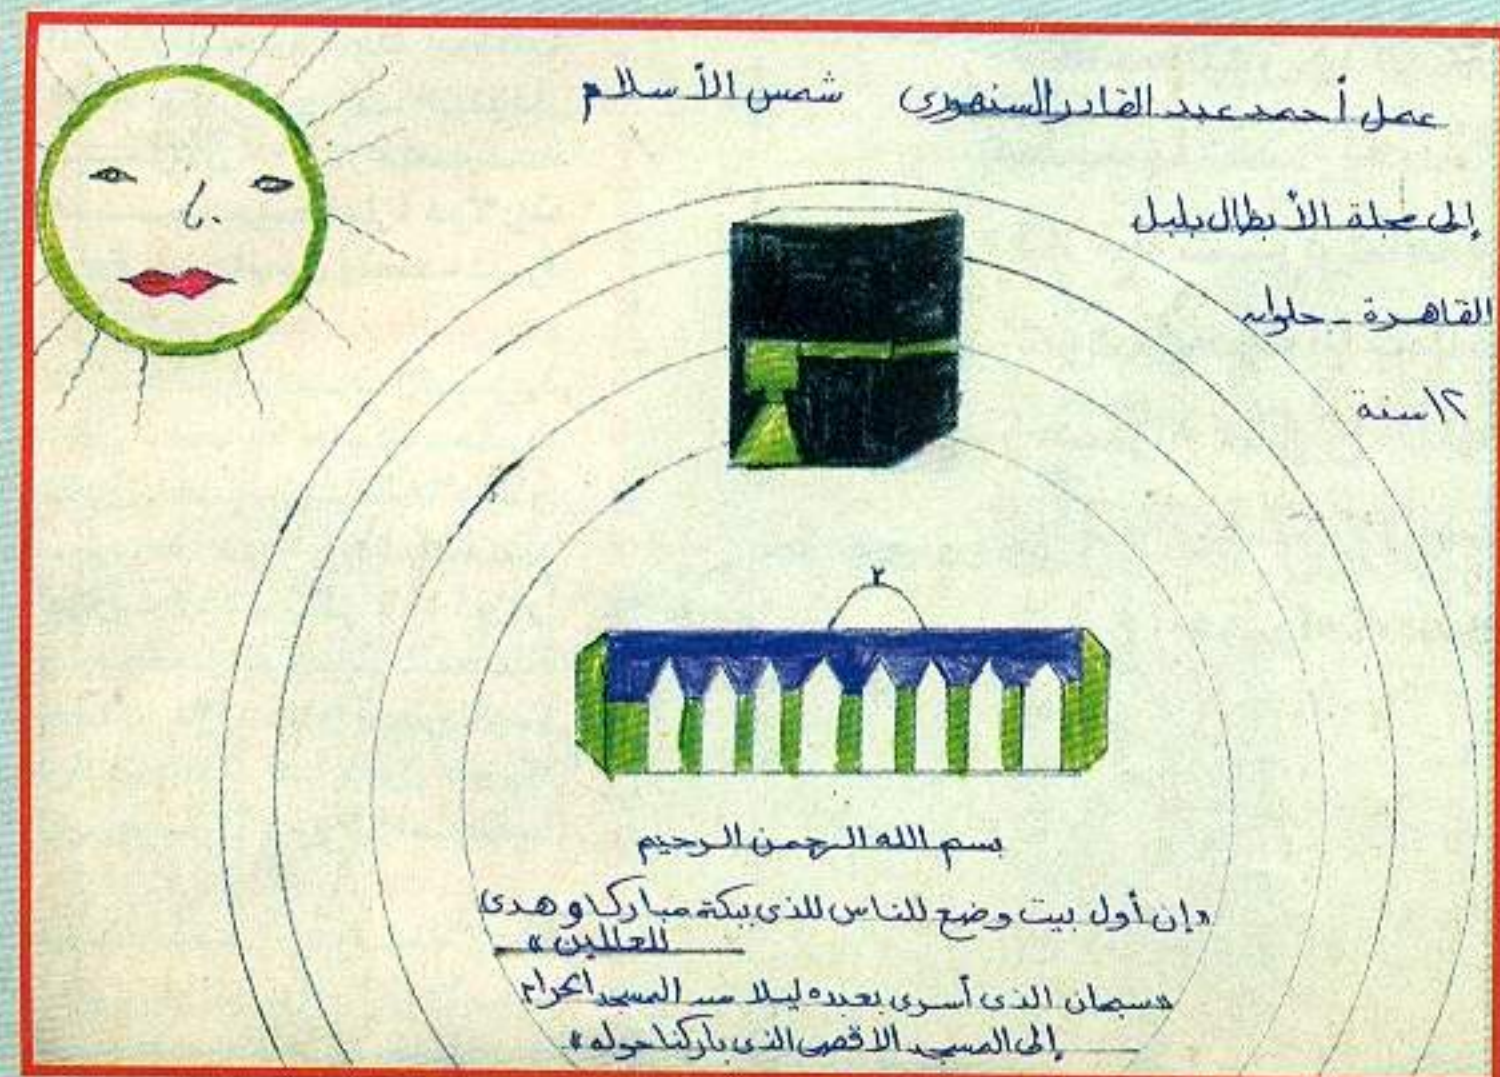 عمل أحمد عبد القادر السنهورى شمس الأسلام
إلى مجلة الأبطال بلبل
القاهرة - حلوان
١٢ سنة
٢
بسم الله الرحمن الرحيم
«إن أول بيت وضع للناس للذى ببكة مباركا وهدى
للعالمين»
«سبحان الذى أسرى بعبده ليلا من المسجد الحرام
إلى المسجد الاقصى الذى باركنا حوله»